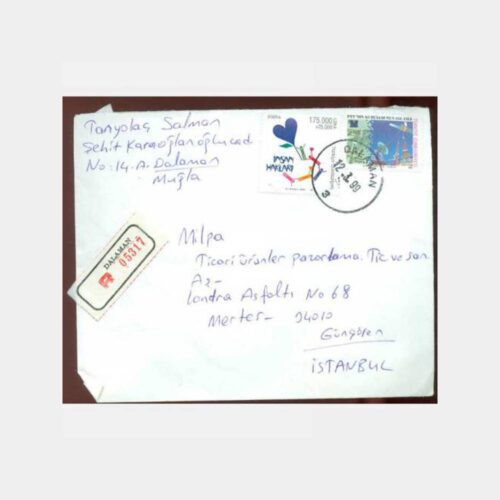 Tanyolaç Salman
Şehit Karaoğlanoğlu cad
No: 14. A. Dalaman
Muğla
175.000
+25.000
İNSAN
HAKLARI
DALAMAN
12.
99
3
DALAMAN
R 05317
Milpa
Ticari ürünler pazarlama. Tic ve san.
Aş-
Londra Asfaltı No 68
Merter- 34010
Güngören
İSTANBUL